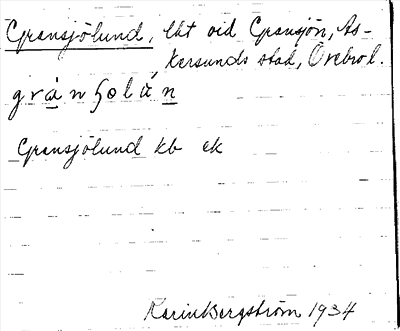 Gransjölund, lht vid Gransjön, As-
kersunds stad, Örebro l.
grànʃolún
Gransjölund kb ek
Karin Bergström 1934